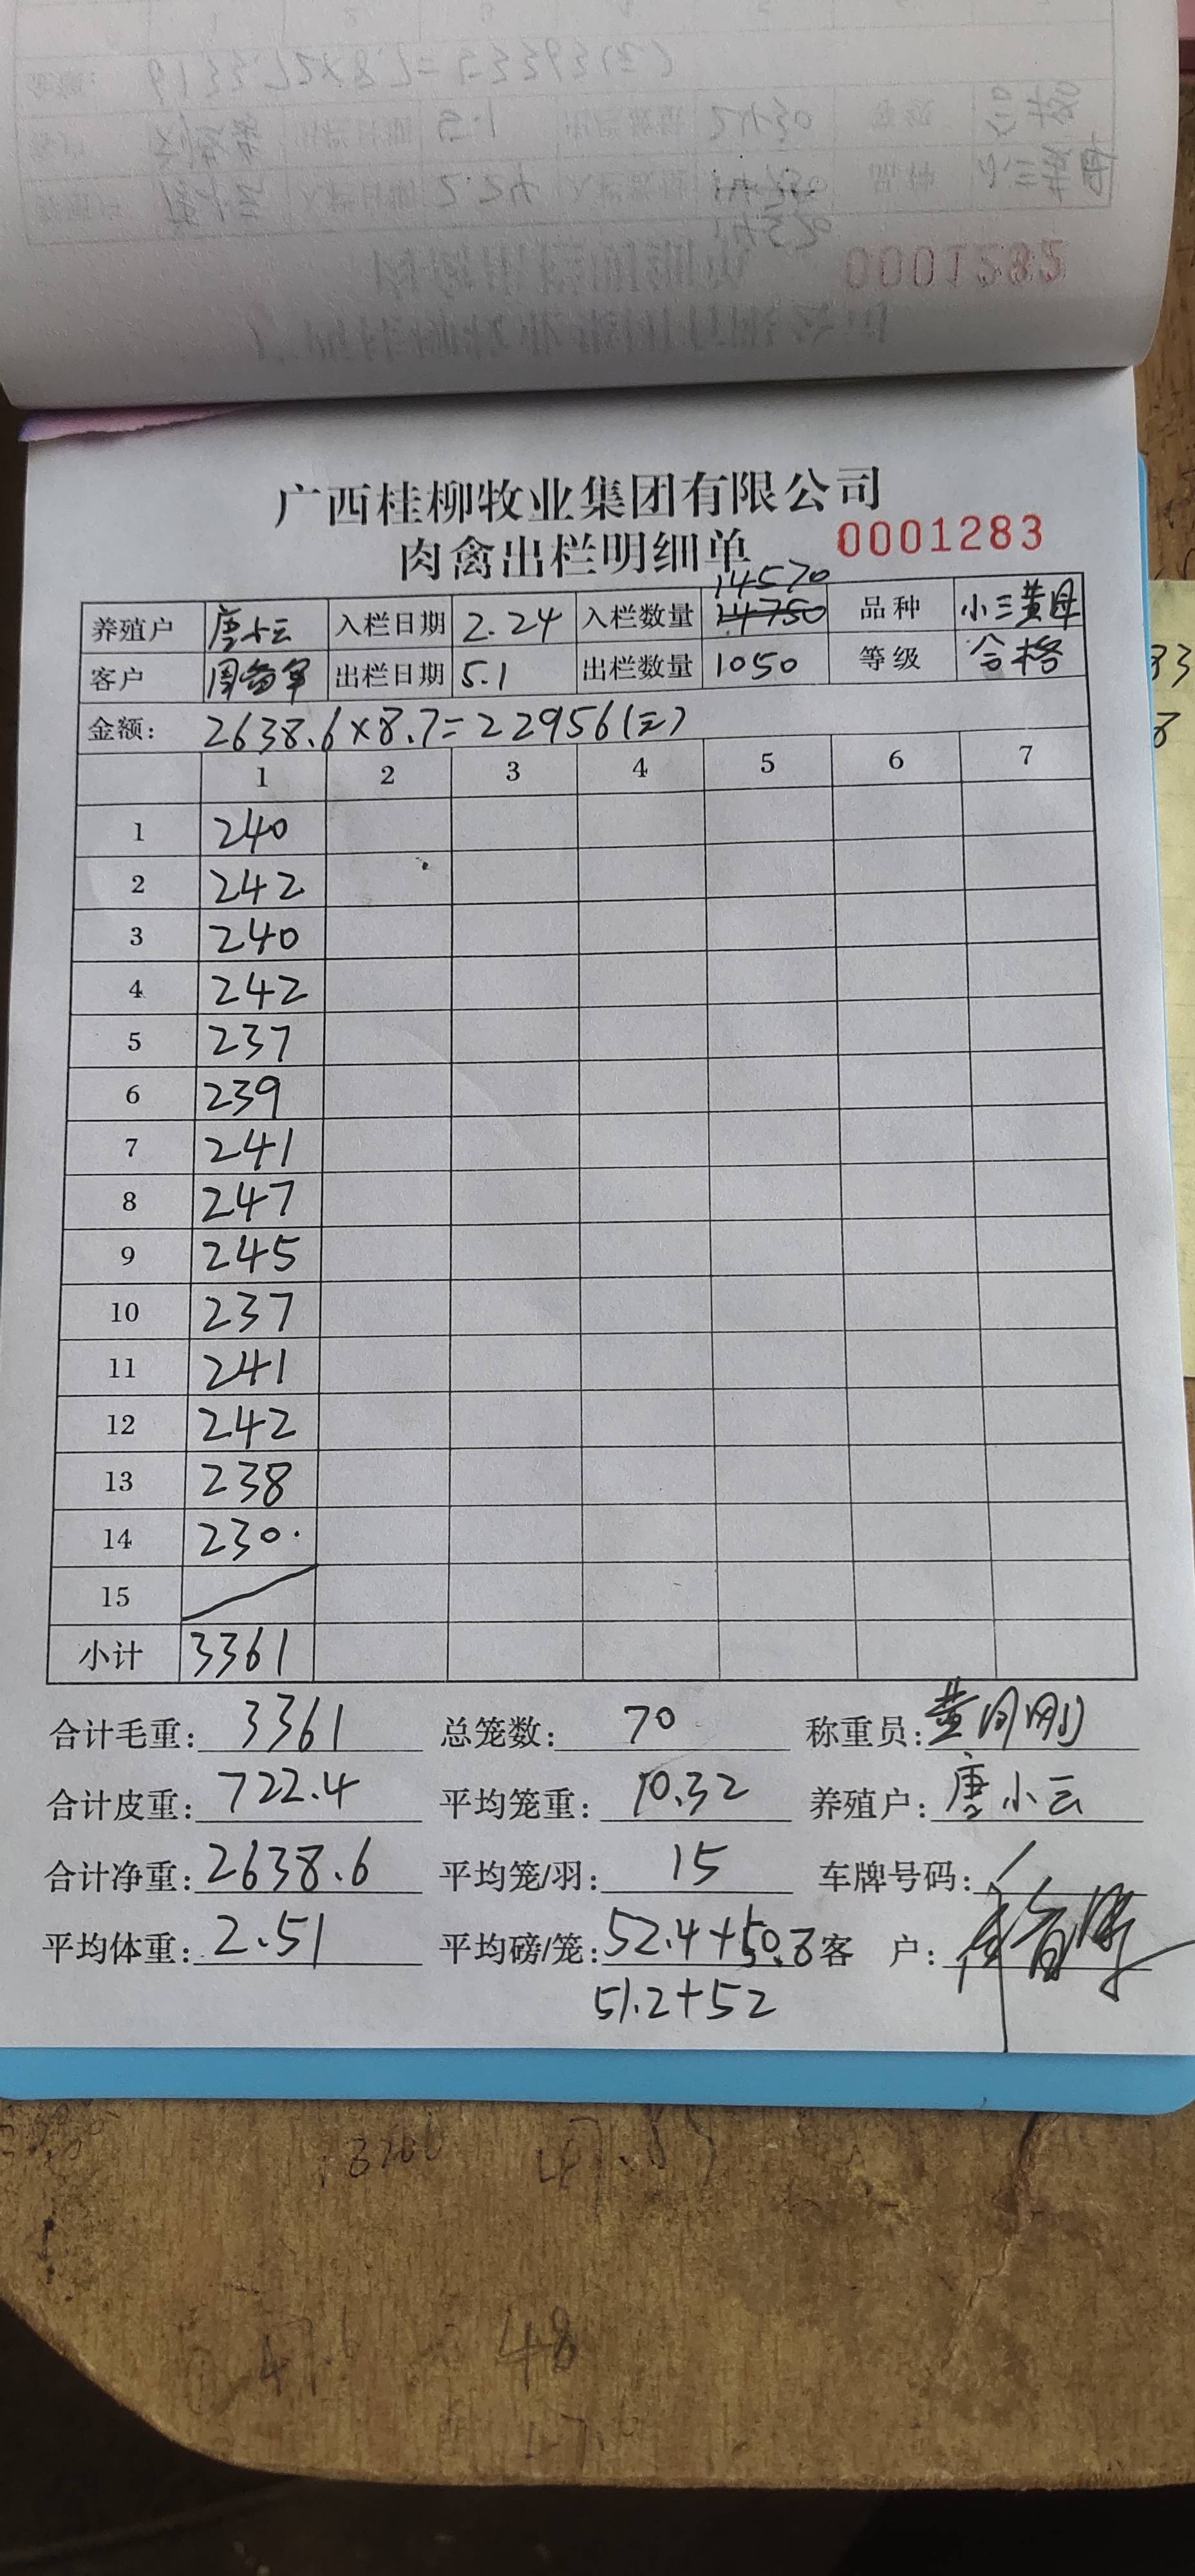 0001282
广西桂柳牧业集团有限公司
肉禽出栏明细单 0001283
14570
养殖户 唐小云 入栏日期 2.24 入栏数量 14750 品种 小三黄母
客户 出栏日期 5.1 出栏数量 1050 等级 合格
金额: 2638.6×8.7=22956(元)
1 2 3 4 5 6 7
1 240
2 242
3 240
4 242
5 237
6 239
7 241
8 247
9 245
10 237
11 241
12 242
13 238
14 230.
15
小计 3361
合计毛重: 3361 总笼数: 70 称重员:
合计皮重: 722.4 平均笼重: 10.32 养殖户: 唐小云
合计净重: 2638.6 平均笼/羽: 15 车牌号码: /
平均体重: 2.51 平均磅/笼: 52.4+50.8 客 户:
51.2+52
48